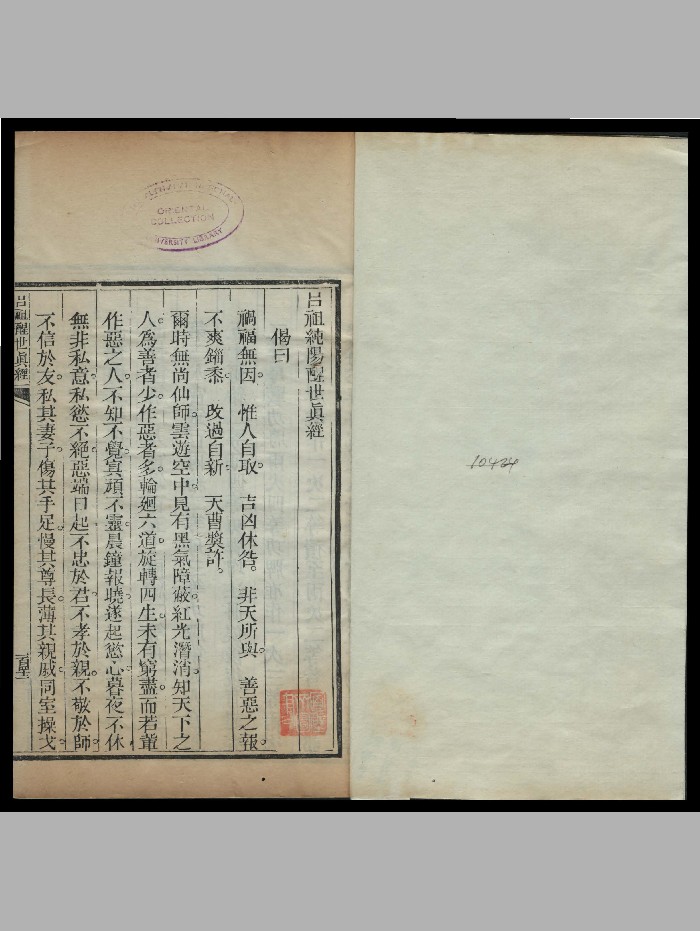 呂祖純陽醒世眞經
偈曰
禍福無因。惟人自取。吉凶休咎。非天所與。善惡之報。
不爽錙黍。改過自新。天曹奬許。
爾時無尚仙師雲遊空中見有黑氣障蔽。紅光潛消。知天下之
人。爲善者少。作惡者多。輪廻六道。旋轉四生。未有窮盡。而若輩
作惡之人。不知不覺。冥頑不靈。晨鐘報曉。遂起慾心。暮夜不休
無非私意。私慾不絕。惡端日起。不忠於君。不孝於親。不敬於師。
不信於友。私其妻子。傷其手足。慢其尊長。薄其親戚。同室操戈。
呂祖醒世眞經
ORIENTAL
COLLECTION
UNIVERSITY LIBRARY
10424